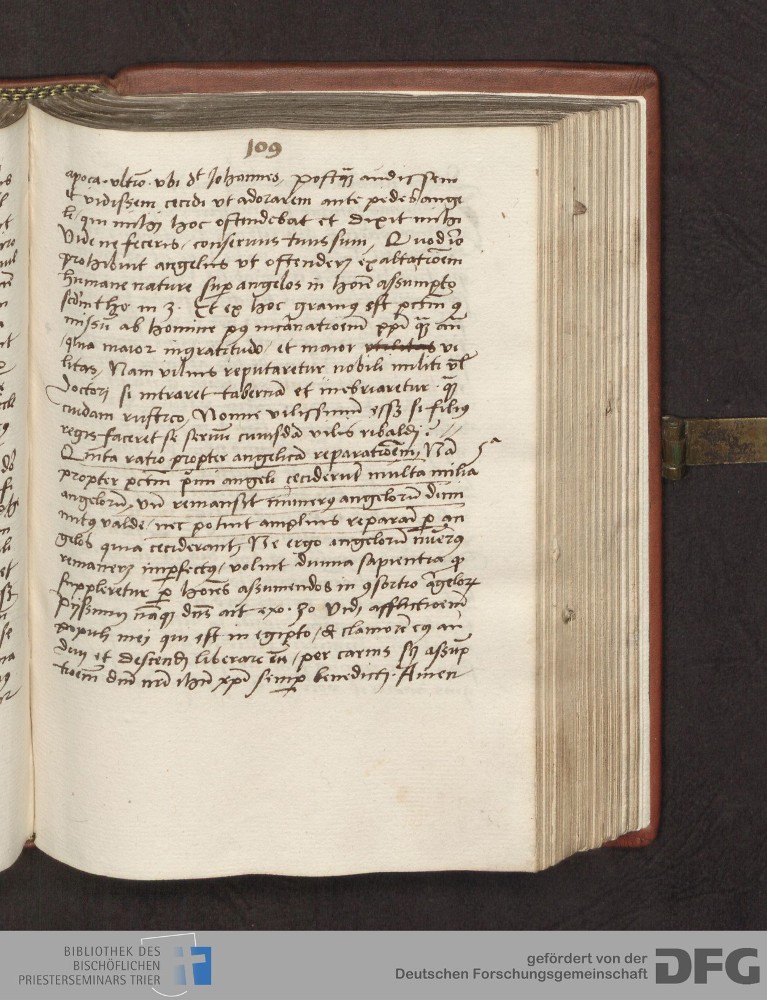 109
apoca. ultīo. ubi dt Johannes, postq̄ audissem
et vidissem cecidi ut adorarem ante pedes ange
li, qui mihi hoc ostendebat et dixit mihi
Vide ne feceris, conservus tuus sum, Quod v̄o
prohibuit angelus ut ostenderet exaltatiōem
humane nature supra angelos in hōie assumpto
scd'm tho in 3. Et ex hoc gravius est pctm̄ q
missū ab homine pꝰ incarnatioēm xpī q̄ an̄
quia maior ingratitudo, et maior utilitas vi
litas, Nam vilius reputaretur nobili militi vl̄
doctori si intraret tabernā et inebriaretur q̄
cuidam rustico, Nonne vilissimū essz si filius
regis faceret se servū cuiusdā vilis ribaldi? //
Quinta ratio propter angelicā reparatiōem, Nā 5ᵃ
propter pctm̄ primi angeli ceciderūt multa milia
angelorū, Vn̄ remansit numerus angelorū dimi
nutus valde, nec potuit amplius reparari per an
gelos quia ceciderant, Ne ergo angelorū nūerꝰ
remaneret imperfectꝰ, voluit divina sapientia qꝫ
suppleretur per hōies assumendos in ꝯsortio āgeloꝝ
Pyssimus nāqꝫ dn̄s ait exo. 3o Vidi afflictioēm
populi mei qui est in egipto, & clamorē eꝰ au
divi et descendi liberare eū, per carnis sꝫ assūp
tioēm dn̄i nr̄i ihū xpī semper benedicti. Amen
BIBLIOTHEK DES
BISCHÖFLICHEN
PRIESTERSEMINARS TRIER
gefördert von der
Deutschen Forschungsgemeinschaft
DFG